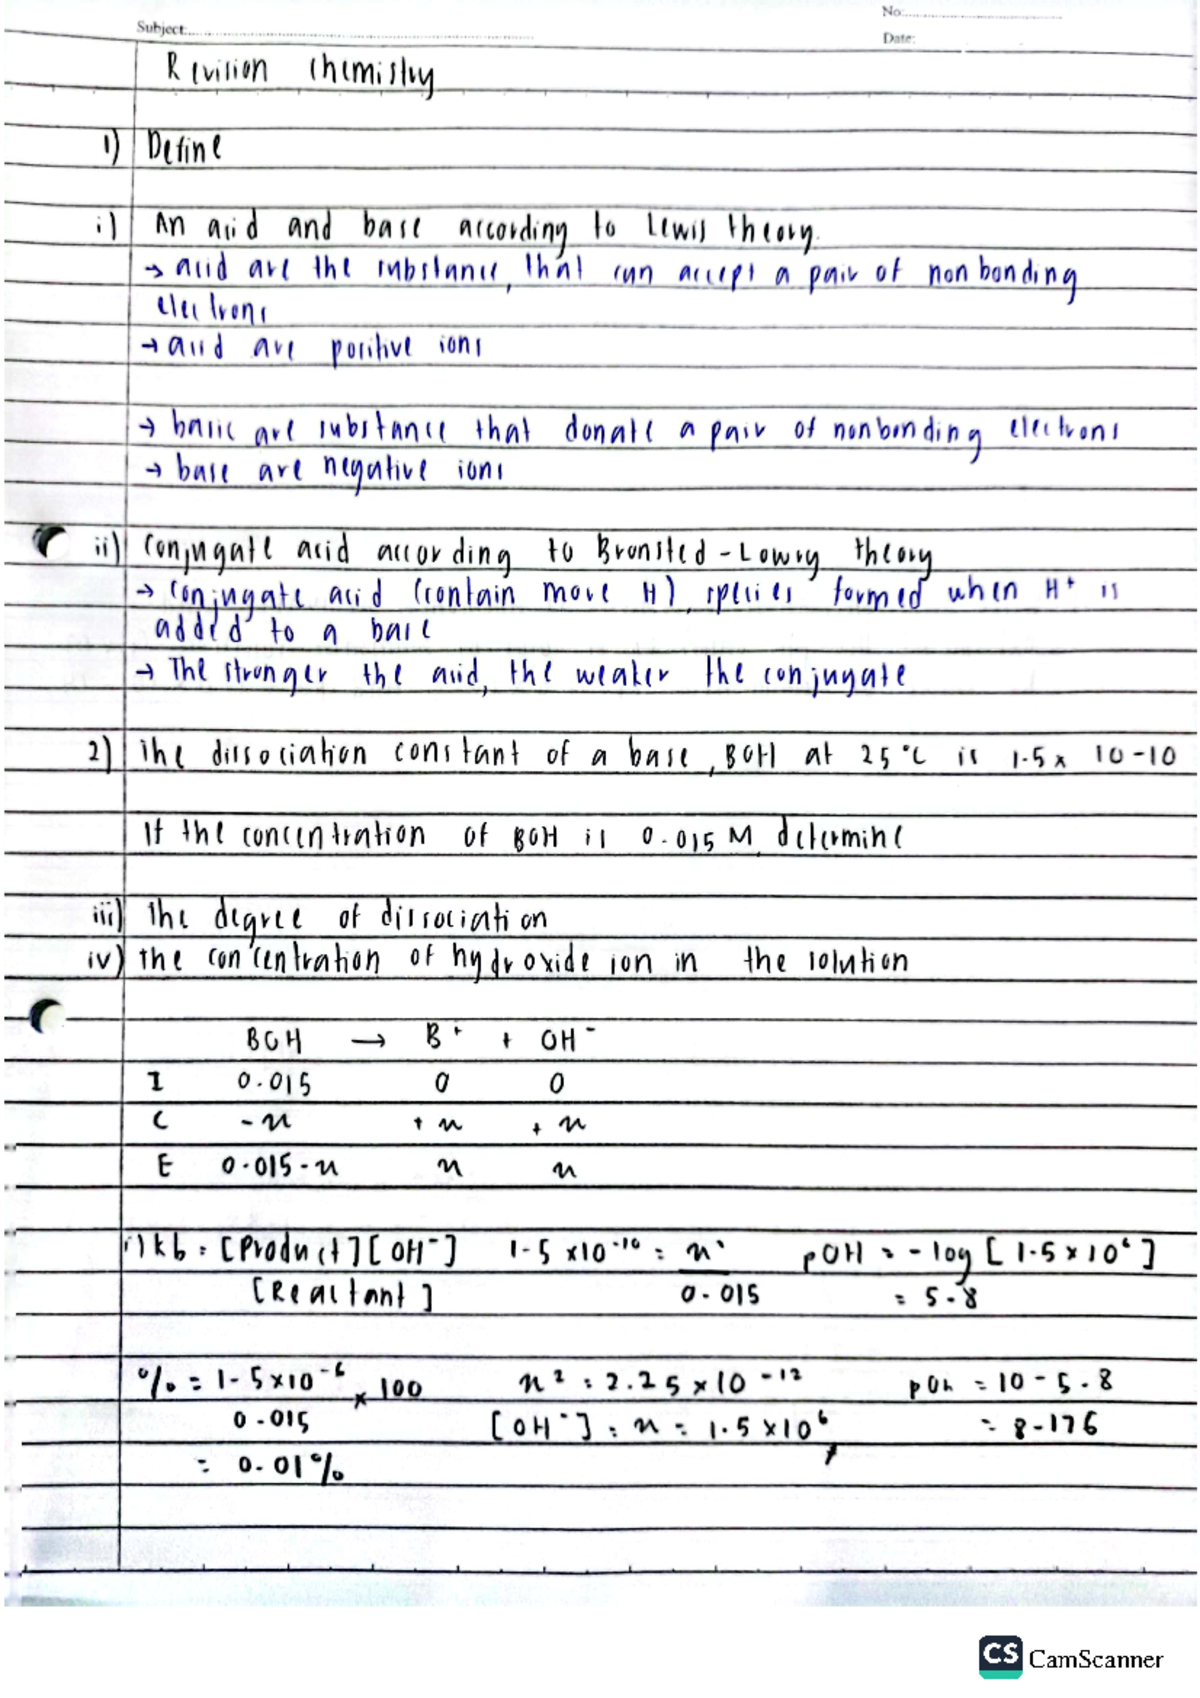 No:
Subject:
Date:
Revision chemistry
1) Define
i) An acid and base according to Lewis theory.
→ acid are the substance, that can accept a pair of nonbonding
electrons
→ acid are positive ions
→ basic are substance that donate a pair of nonbonding electrons
→ base are negative ions
ii) Conjugate acid according to Bronsted-Lowry theory
→ conjugate acid (contain more H), species formed when H⁺ is
added to a base
→ The stronger the acid, the weaker the conjugate
2) The dissociation constant of a base, BOH at 25°C is 1.5 x 10-10
If the concentration of BOH is 0.015 M, determine
iii) The degree of dissociation
iv) the concentration of hydroxide ion in the solution
BOH → B⁺ + OH⁻
I 0.015 0 0
C -x +x +x
E 0.015-x x x
i) kb = [Product][OH⁻] 1.5 x10⁻¹⁰ = x² pOH = -log [1.5 x 10⁶]
[Reactant] 0.015 = 5.8
% = 1.5x10⁻⁶ x 100 x² = 2.25 x 10⁻¹² pOh = 10-5.8
0.015 [OH⁻] = x = 1.5 x10⁶ = 8.176
= 0.01%
CS CamScanner